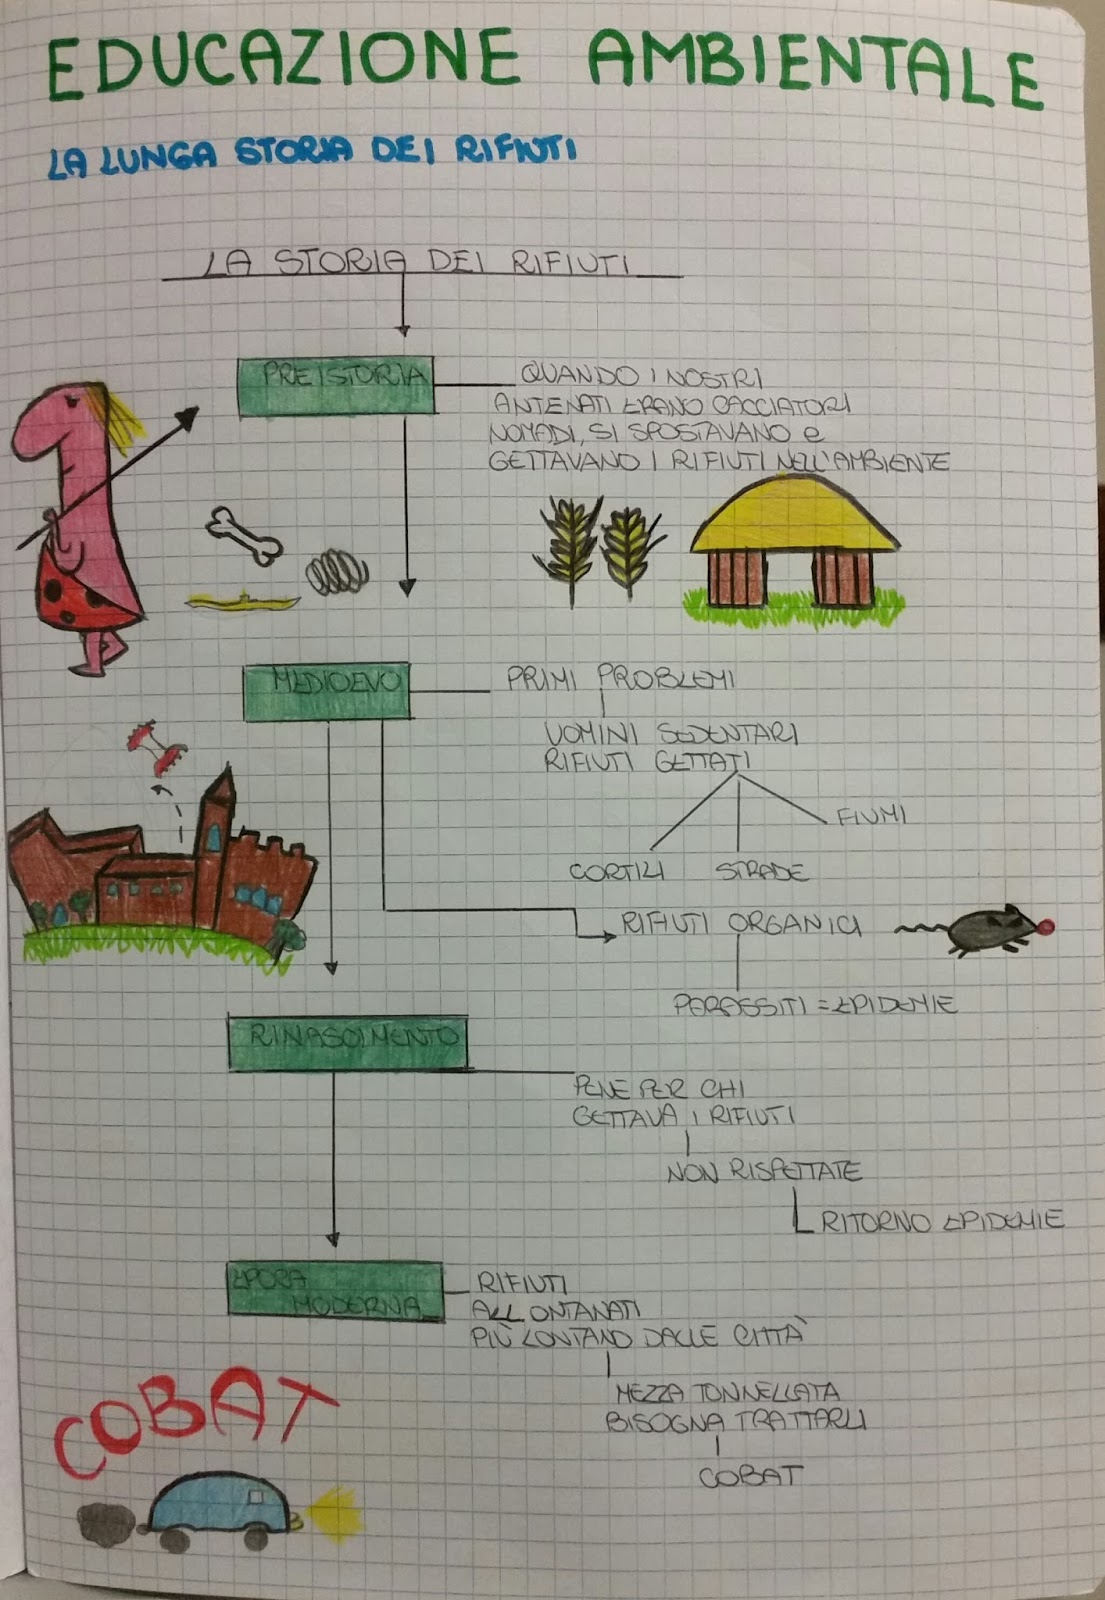 EDUCAZIONE AMBIENTALE
LA LUNGA STORIA DEI RIFIUTI
LA STORIA DEI RIFIUTI
PREISTORIA
QUANDO I NOSTRI
ANTENATI ERANO CACCIATORI
NOMADI, SI SPOSTAVANO e
GETTAVANO I RIFIUTI NELL'AMBIENTE
MEDIOEVO
PRIMI PROBLEMI
UOMINI SEDENTARI
RIFIUTI GETTATI
FIUMI
CORTILI STRADE
RIFIUTI ORGANICI
PARASSITI = EPIDEMIE
RINASCIMENTO
PENE PER CHI
GETTAVA I RIFIUTI
NON RISPETTATE
RITORNO EPIDEMIE
EPORA
MODERNA
RIFIUTI
ALLONTANATI
PIÙ LONTANO DALLE CITTÀ
MEZZA TONNELLATA
BISOGNA TRATTARLI
COBAT
COBAT